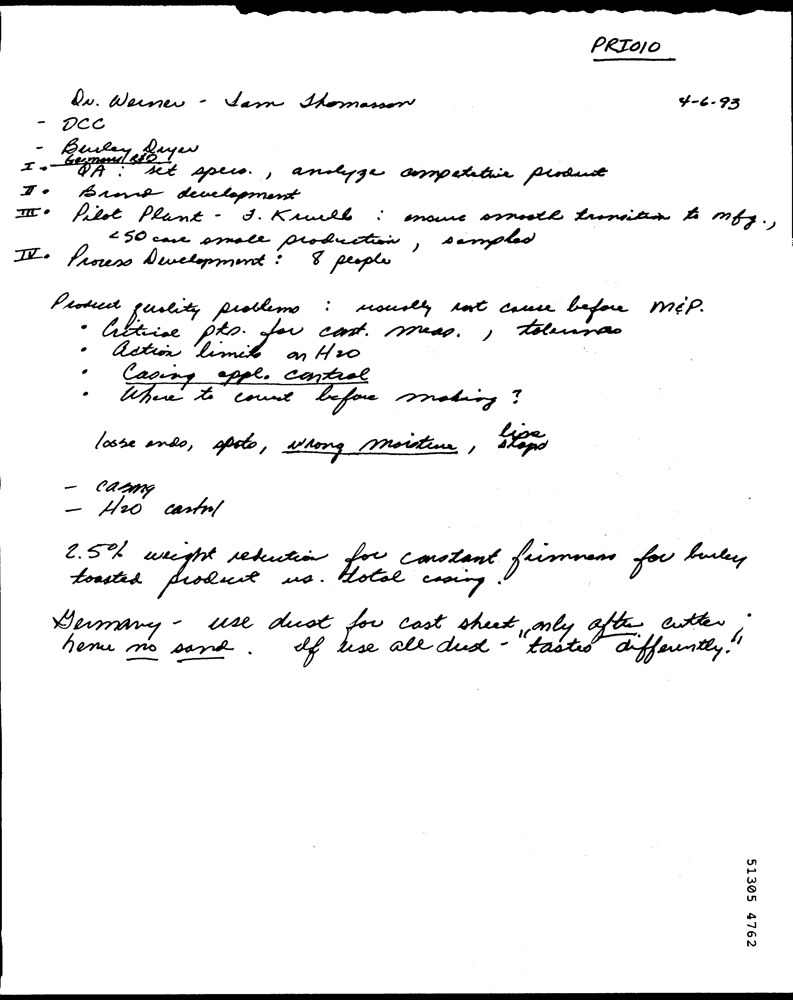 PRIO10
Dr. Werner - Sam Thomasson 4-6-93
- DCC
- Burley Dryer
Germany R&D
I. QA : set specs. , analyze competative product
II. Brand development
III. Pilot Plant - J. : ensure smooth transition to mfg.,
<50 case small production , samples
IV. Process Development : 8 people
Product quality problems : usually root cause before M&P.
• Critical pts. for cont. meas. , tolerances
• action limits on H2O
• Casing appl. control
• Where to count before making ?
loose ends, spots, wrong moisture ,
- casing
- H2O control
2.5% weight reduction for constant firmness for burley
toasted product vs. total casing.
Germany - use dust for cast sheet "only after cutter ;
hence no sand. If use all dust - tastes differently."
51305 4762